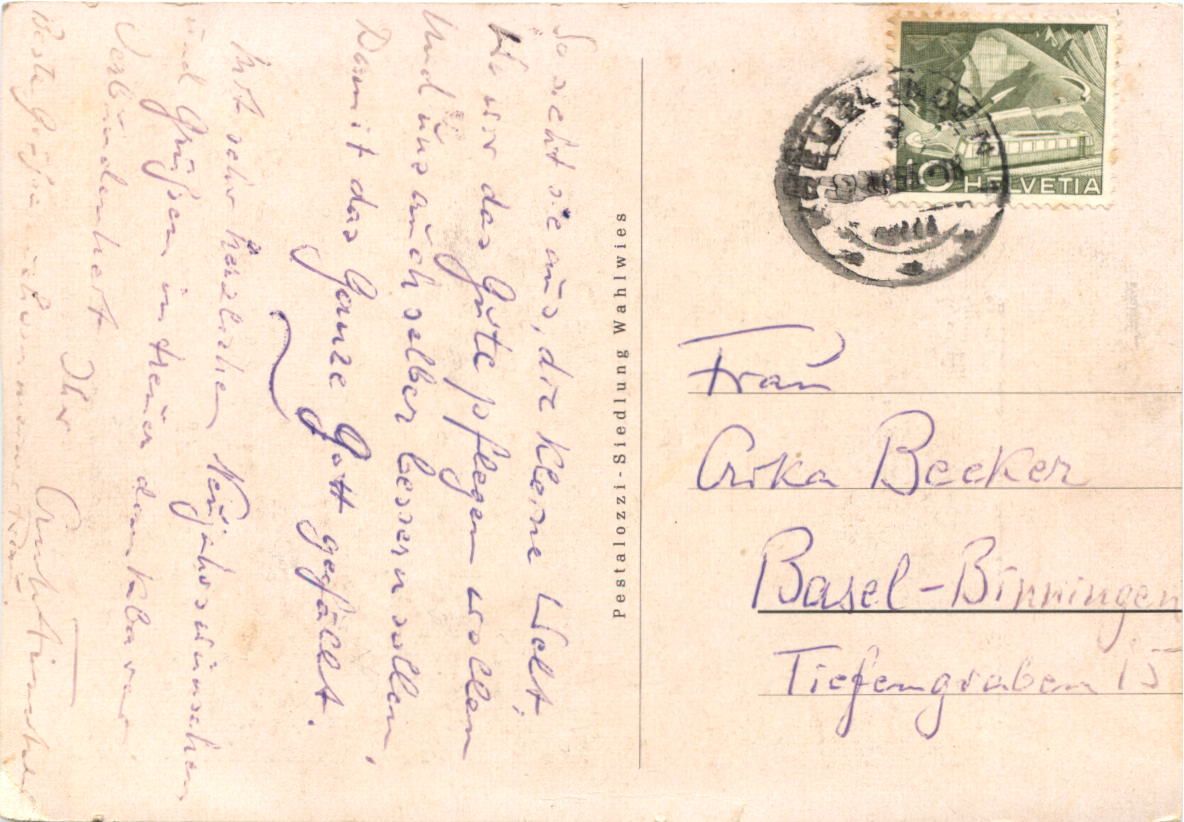 So sieht sie aus, die kleine Welt,
Wo wir das Gute pflegen wollen
Und uns auch selber bessern sollen,
Damit das Ganze Gott gefällt.
Mit sehr herzlichen Neujahrswünschen
und Grüßen in treuer dankbarer
Verbundenheit
Ihr
Beste Grüße
Pestalozzi-Siedlung Wahlwies
10 HELVETIA
KREUZLINGEN
Frau
Erika Becker
Basel-Binningen
Tiefengraben 15